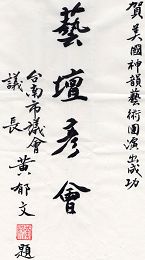 賀美國神韻藝術團演出成功
藝壇彥會
台南市議會
議長 黃郁文 題